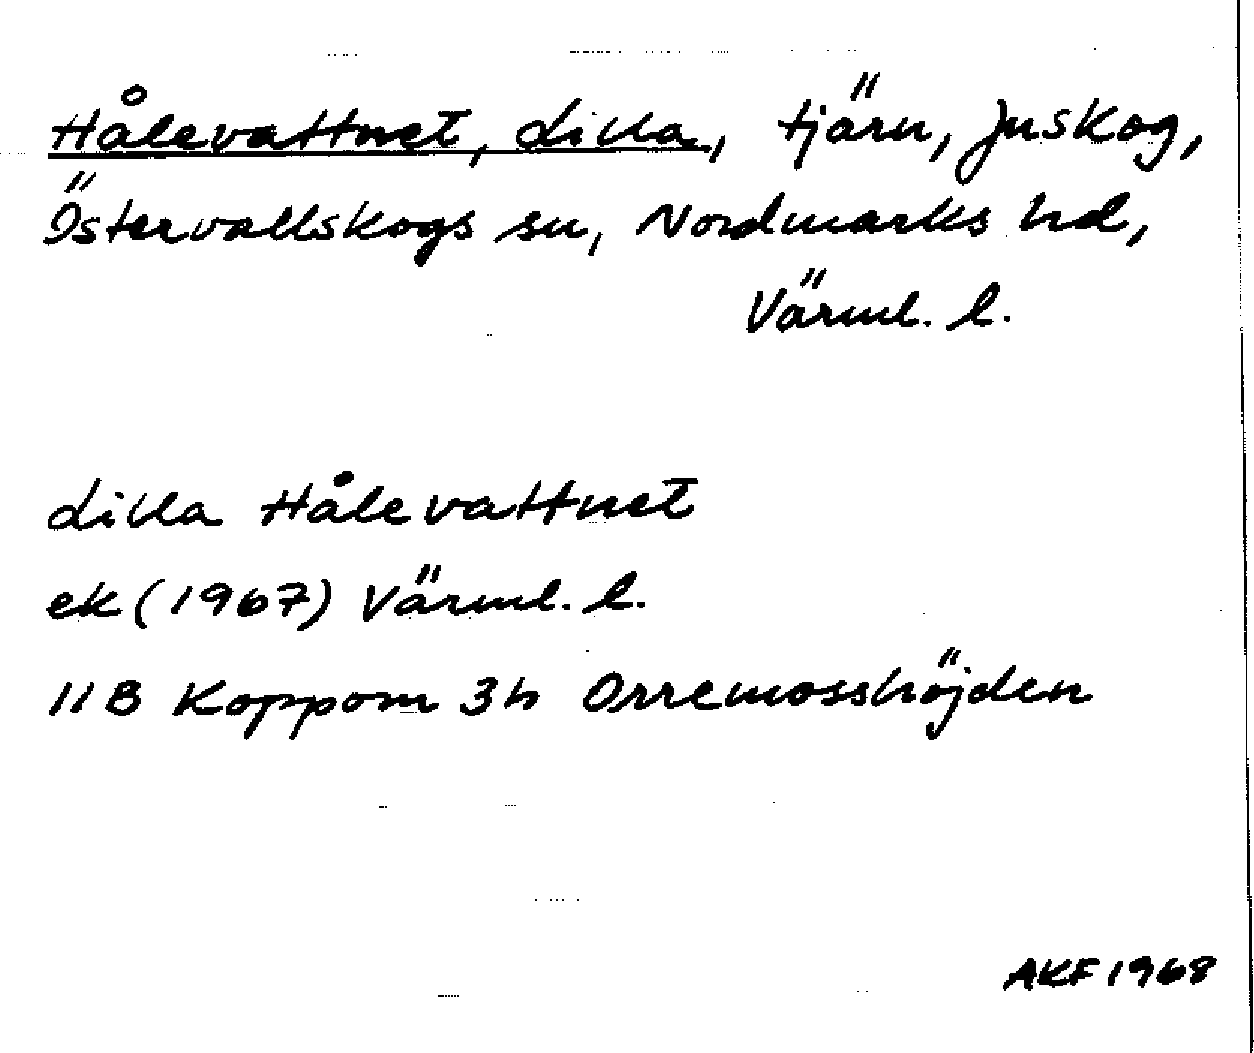 Hålevattnet, Lilla, tjärn, Juskog,
Östervallskogs sn, Nordmarks hd,
Värml. l.
Lilla Hålevattnet
ek (1967) Värml. l.
11B Koppom 3h Orremosshöjden
AKF 1968